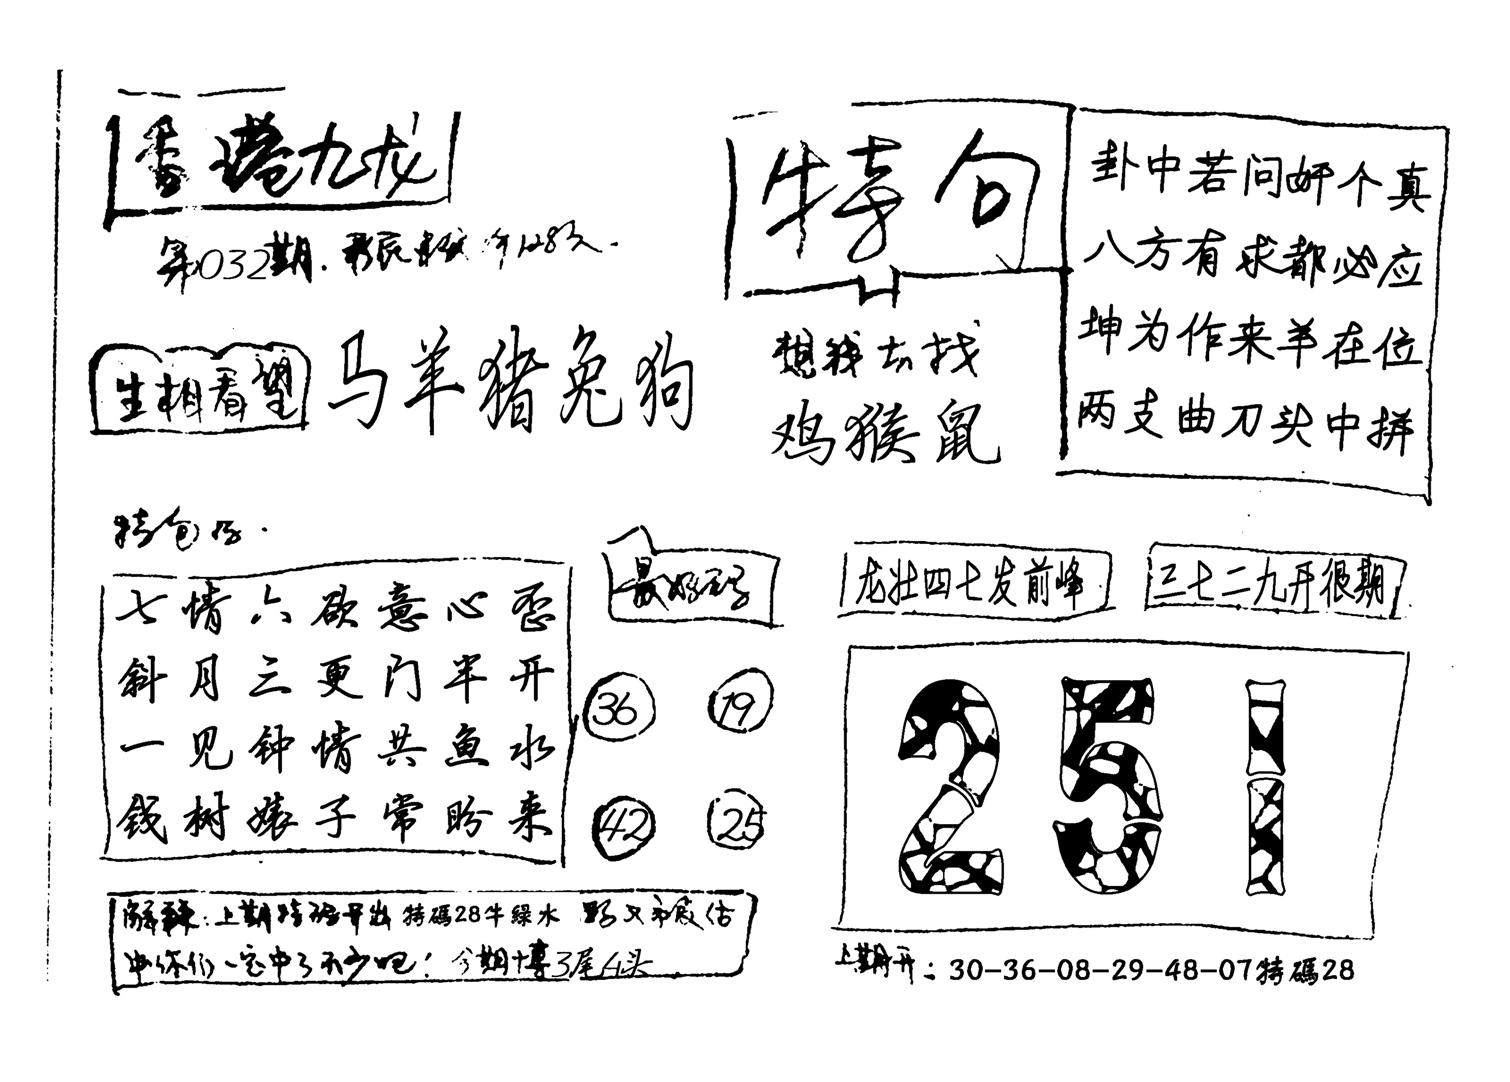 香港九龙
第032期.
生相看望
马羊猪兔狗
特句
想钱去找
鸡猴鼠
卦中若问奸个真
八方有求都必应
坤为作来羊在位
两支曲刀头中拼
七情六欲意心歪
斜月三更门半开
一见钟情共鱼水
钱树婊子常盼来
最好码
36 19
42 25
龙壮四七发前峰
三七二九开很期
251
上期特码开出特碼28牛綠水
你们一定中了不少吧！今期博3尾4头
上期开：30-36-08-29-48-07特碼28